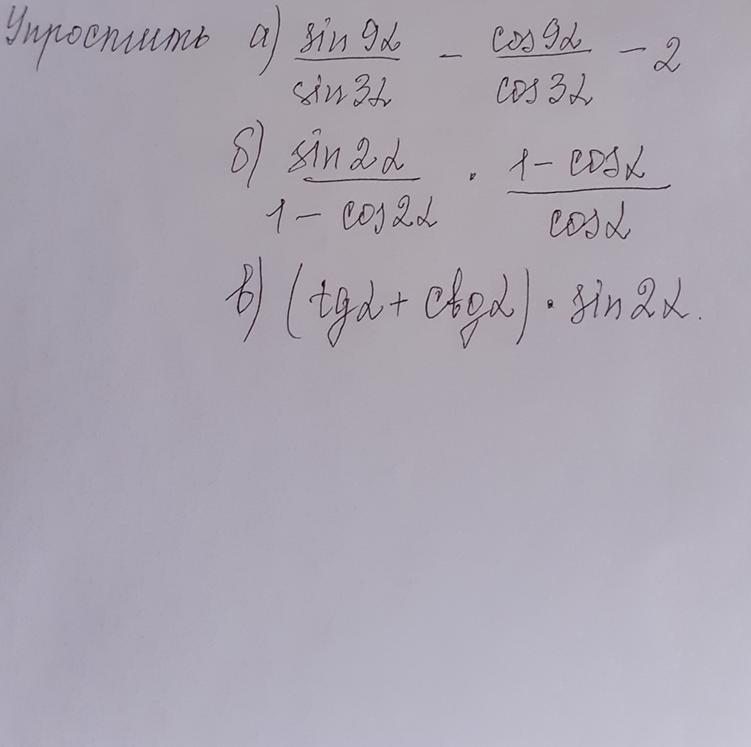 Упростить а) sin9α/sin3α − cos9α/cos3α − 2
б) sin2α/1 − cos2α · 1 − cosα/cosα
в) (tgα + ctgα) · sin2α.